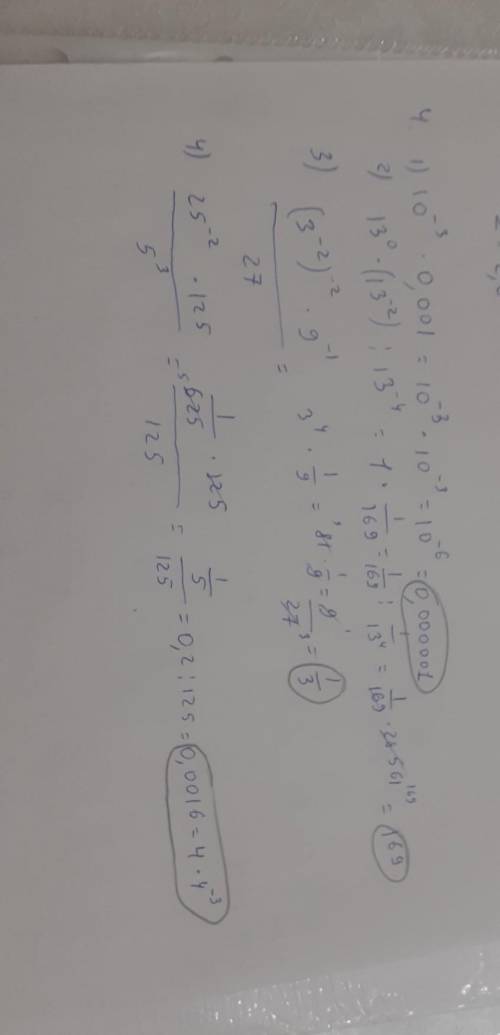 4. 1) 10⁻³ · 0,001 = 10⁻³ · 10⁻³ = 10⁻⁶ = 0,000001
2) 13⁰ · (13⁻²) : 13⁻⁴ = 1 · 1/169 = 1/169 : 1/13⁴ = 1/169 · 28561 169 = 169
3) (3⁻²)⁻² · 9⁻¹ / 27 = 3⁴ · 1/9 = 81 · 1/9 = 9 / 27 3 = 1/3
4) 25⁻² · 125 / 5³ = 1/625 5 · 125 / 125 = 1/5 / 125 = 0,2 : 125 = 0,0016 = 4 · 4⁻³